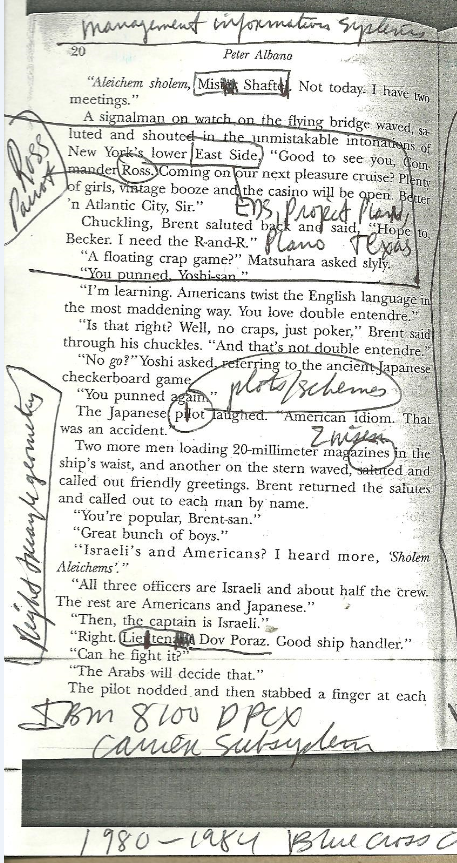 management information systems
20 Peter Albano
"Aleichem sholem, Shafte. Not today. I have two
meetings."
A signalman on watch on the flying bridge waved, sa-
luted and shouted in the unmistakable intonations of
New York's lower East Side, "Good to see you, Com-
mander Ross. Coming on our next pleasure cruise? Plenty
of girls, vintage booze and the casino will be open. Better
'n Atlantic City, Sir."
EDS, Project Plans,
Chuckling, Brent saluted back and said, "Hope to,
Becker. I need the R-and-R."
Plano Texas
"A floating crap game?" Matsuhara asked slyly.
"You punned, Yoshi-san."
"I'm learning. Americans twist the English language in
the most maddening way. You love double entendre."
"Is that right? Well, no craps, just poker," Brent said
through his chuckles. "And that's not double entendre."
"No go?" Yoshi asked, referring to the ancient Japanese
checkerboard game.
plots/schemes
"You punned again."
The Japanese pilot laughed. "American idiom. That
was an accident.
Two more men loading 20-millimeter magazines in the
ship's waist, and another on the stern waved, saluted and
called out friendly greetings. Brent returned the salutes
and called out to each man by name.
"You're popular, Brent-san."
"Great bunch of boys."
"Israeli's and Americans? I heard more, 'Sholem
Aleichems'."
"All three officers are Israeli and about half the crew.
The rest are Americans and Japanese."
"Then, the captain is Israeli."
"Right. Dov Poraz. Good ship handler."
"Can he fight it?"
"The Arabs will decide that."
The pilot nodded and then stabbed a finger at each
Ross
Right triangle geometry
IBM 8100 DPCX
Carrien Subsystem
1980-1984 Blue Cross